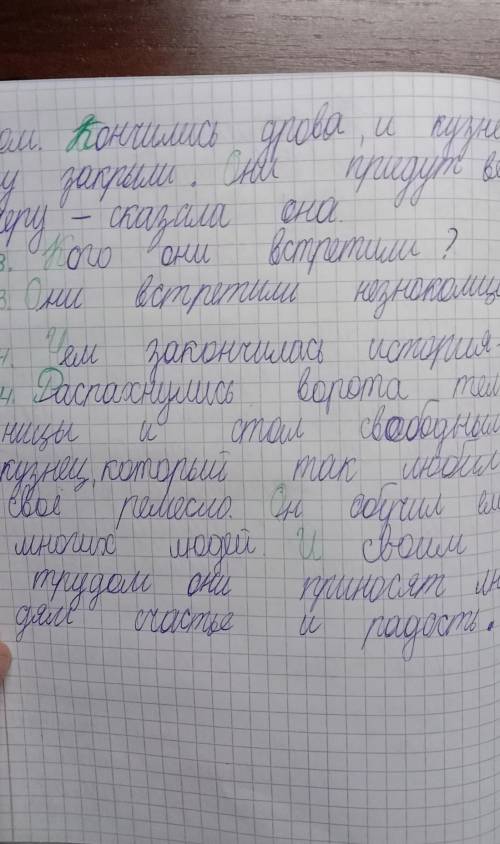 ом. Кончились дрова, и кузне
у закрыли. Они придут ве
черу – сказала она.
3. Кого они встретили?
3. Они встретили незнокомца
4. Чем закончилась история
4. Распахнулись ворота тем
ницы и стал свободным
кузнец, который так любил
своё ремесло. Он обучил ему
многих людей. И своим
трудом они приносят лю
дям счастье и радость.